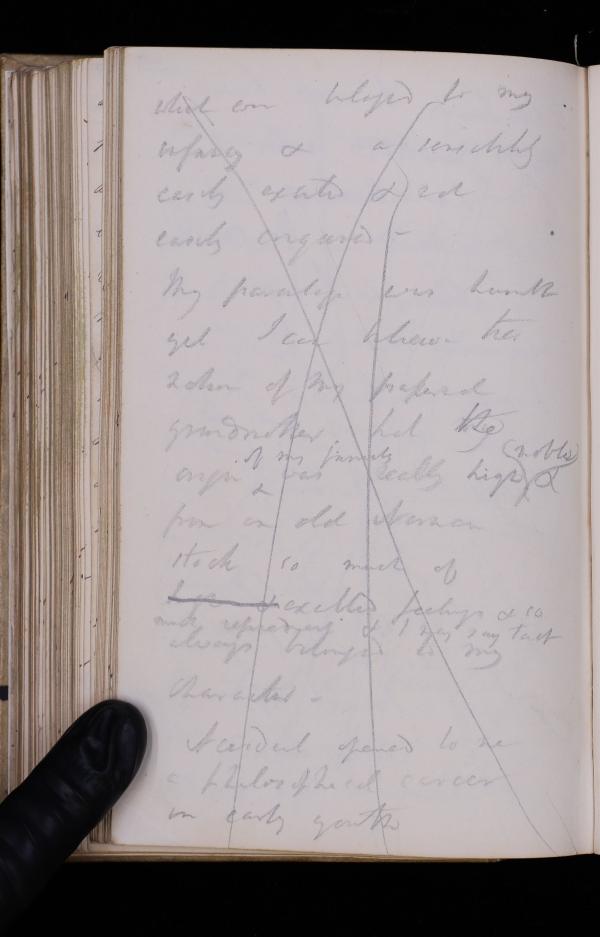 which ever belonged to my
infancy & a sensibility
easily excited & not
easily conquered -
My parentage was humble
yet I can believe the
notion of my paternal
grandmother that the
origin of my family was really high (noble) &
from an old Norman
stock so much of
exalted feelings & so
much refinement & I may say tact
always belonged to my
character -
Accident opened to me
a philosophical career
in early youth